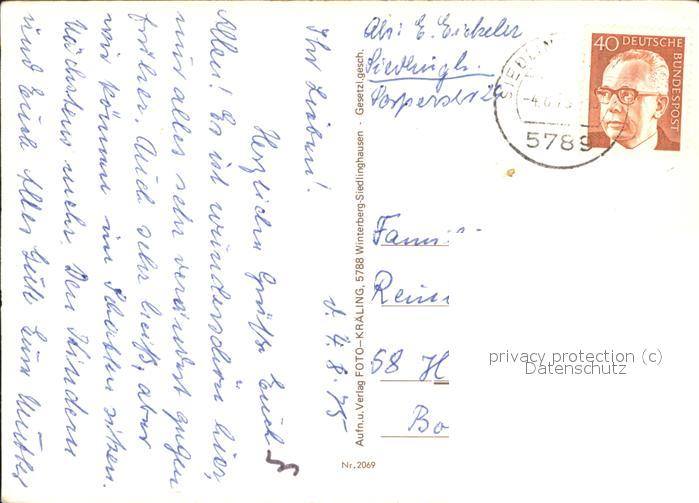 d. 4. 8. 75
Ihr Lieben!
Herzliche Grüße Euch
Allen! Es ist wunderschön hier,
nur alles sehr verändert gegen
früher. Auch sehr heiß, aber
wir können im Schatten sitzen.
Nächstens mehr. Den Kindern
und Euch Alles Gute Eure Mutter
Aufn. u. Verlag FOTO-KRÄLING, 5788 Winterberg-Siedlinghausen · Gesetzl. gesch.
Nr. 2069
Abs: E. Eickeler
Siedlingh.
SIEDL
5789
40 DEUTSCHE
BUNDESPOST
Fami
58 H
Bo
privacy protection (c)
Datenschutz